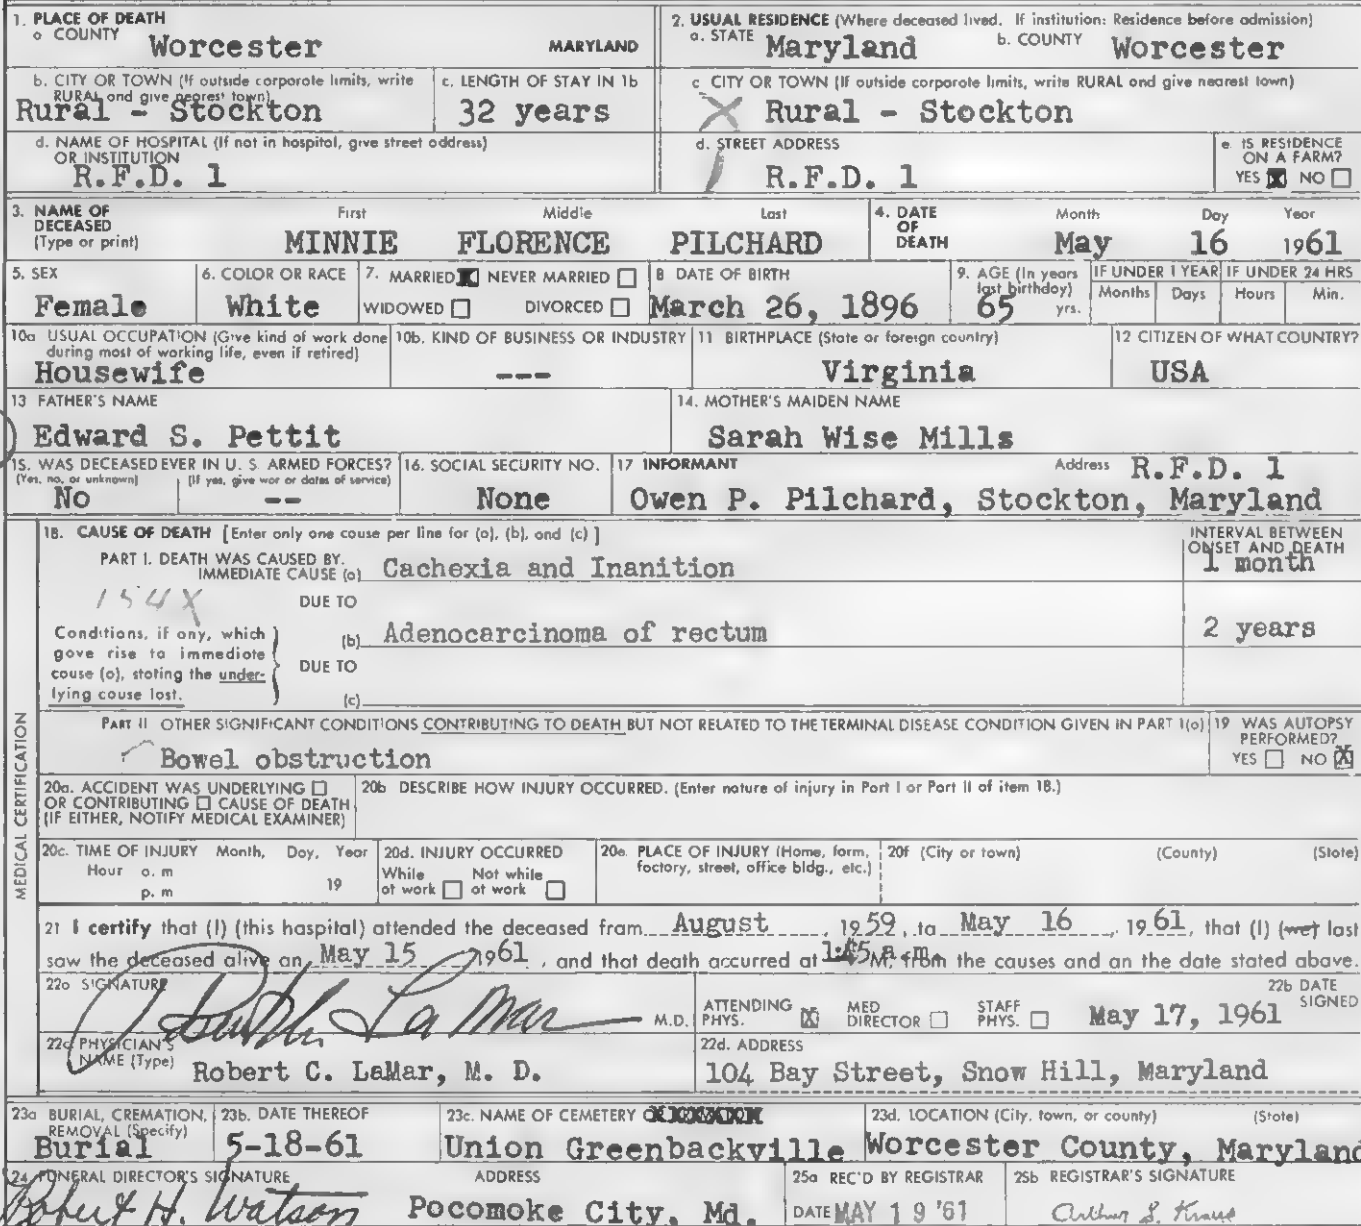 1. PLACE OF DEATH
a COUNTY Worcester MARYLAND
2. USUAL RESIDENCE (Where deceased lived. If institution: Residence before admission)
a. STATE Maryland b. COUNTY Worcester
b. CITY OR TOWN (If outside corporate limits, write RURAL and give nearest town)
Rural - Stockton
c. LENGTH OF STAY IN 1b
32 years
c CITY OR TOWN (If outside corporate limits, write RURAL and give nearest town)
X Rural - Stockton
d. NAME OF HOSPITAL (If not in hospital, give street address)
OR INSTITUTION
R.F.D. 1
d. STREET ADDRESS
R.F.D. 1
e. IS RESIDENCE
ON A FARM?
YES NO
3. NAME OF
DECEASED
(Type or print)
First Middle Last
MINNIE FLORENCE PILCHARD
4. DATE
OF
DEATH
Month Day Year
May 16 1961
5. SEX
Female
6. COLOR OR RACE
White
7. MARRIED NEVER MARRIED
WIDOWED DIVORCED
8 DATE OF BIRTH
March 26, 1896
9. AGE (In years
last birthday)
65 yrs.
IF UNDER 1 YEAR IF UNDER 24 HRS
Months Days Hours Min.
10a USUAL OCCUPATION (Give kind of work done
during most of working life, even if retired)
Housewife
10b. KIND OF BUSINESS OR INDUSTRY
---
11 BIRTHPLACE (State or foreign country)
Virginia
12 CITIZEN OF WHAT COUNTRY?
USA
13 FATHER'S NAME
Edward S. Pettit
14. MOTHER'S MAIDEN NAME
Sarah Wise Mills
15. WAS DECEASED EVER IN U. S. ARMED FORCES?
(Yes, no, or unknown) (If yes, give war or dates of service)
No --
16. SOCIAL SECURITY NO.
None
17 INFORMANT Address R.F.D. 1
Owen P. Pilchard, Stockton, Maryland
MEDICAL CERTIFICATION
18. CAUSE OF DEATH [Enter only one cause per line for (a), (b), and (c) ]
INTERVAL BETWEEN
ONSET AND DEATH
PART I. DEATH WAS CAUSED BY.
IMMEDIATE CAUSE (a) Cachexia and Inanition 1 month
154X DUE TO
Conditions, if any, which
gave rise to immediate
cause (a), stating the under-
lying cause last.
(b) Adenocarcinoma of rectum 2 years
DUE TO
(c)
PART II OTHER SIGNIFICANT CONDITIONS CONTRIBUTING TO DEATH BUT NOT RELATED TO THE TERMINAL DISEASE CONDITION GIVEN IN PART I(a)
Bowel obstruction
19 WAS AUTOPSY
PERFORMED?
YES NO X
20a. ACCIDENT WAS UNDERLYING
OR CONTRIBUTING CAUSE OF DEATH
(IF EITHER, NOTIFY MEDICAL EXAMINER)
20b DESCRIBE HOW INJURY OCCURRED. (Enter nature of injury in Part I or Part II of item 18.)
20c. TIME OF INJURY Month, Day, Year
Hour a. m
p. m 19
20d. INJURY OCCURRED
While Not while
at work at work
20e. PLACE OF INJURY (Home, farm,
factory, street, office bldg., etc.)
20f (City or town) (County) (State)
21 I certify that (I) (this hospital) attended the deceased from August, 1959, to May 16, 1961, that (I) (we) last
saw the deceased alive on May 15 1961, and that death occurred at 1:45 a.m. M, from the causes and on the date stated above.
22a SIGNATURE
Robert C. La Mar M.D.
ATTENDING
PHYS. X
MED
DIRECTOR
STAFF
PHYS.
22b DATE
SIGNED
May 17, 1961
22c PHYSICIAN'S
NAME (Type)
Robert C. LaMar, M. D.
22d. ADDRESS
104 Bay Street, Snow Hill, Maryland
23a BURIAL, CREMATION,
REMOVAL (Specify)
Burial
23b. DATE THEREOF
5-18-61
23c. NAME OF CEMETERY
Union Greenbackville
23d. LOCATION (City, town, or county) (State)
Worcester County, Maryland
24 FUNERAL DIRECTOR'S SIGNATURE
Robert H. Watson
ADDRESS
Pocomoke City, Md.
25a REC'D BY REGISTRAR
DATE MAY 19 '61
25b REGISTRAR'S SIGNATURE
Arthur S. Kraus